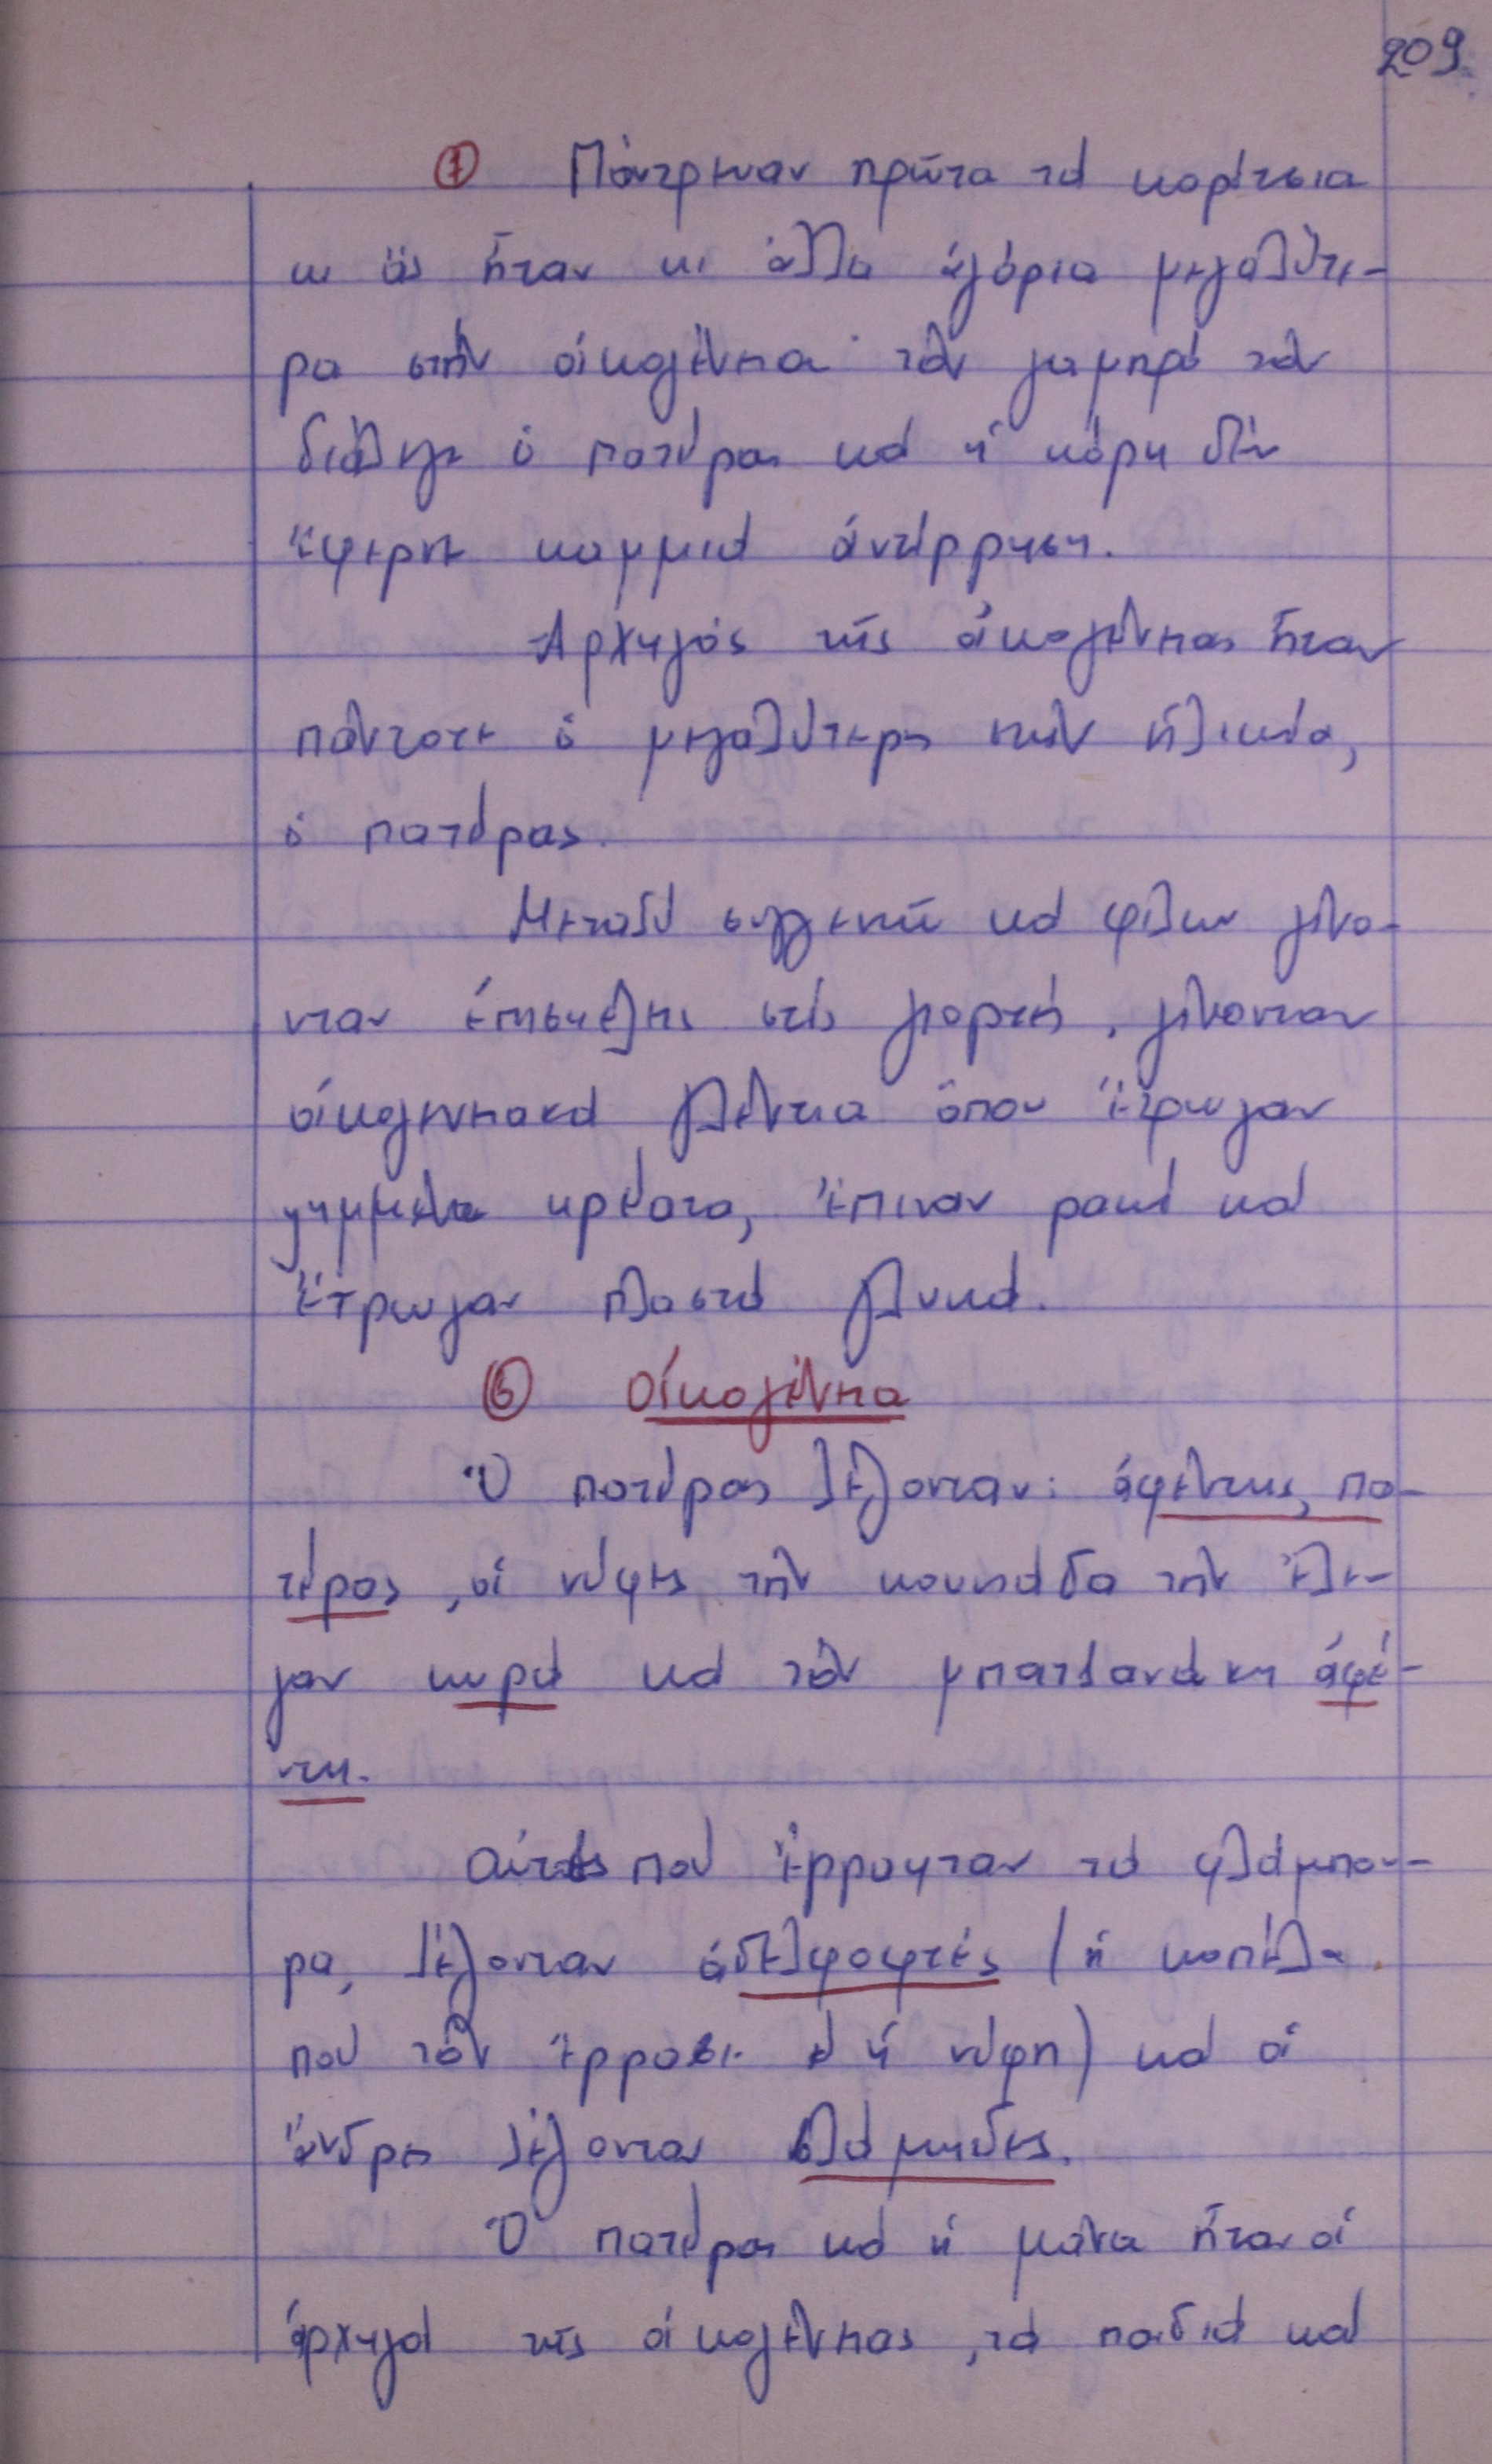 209
① Πάντρευαν πρῶτα τά κορίτσια
κι ἄς ἦταν κι ἄλλα ἀγόρια μεγαλύτε-
ρα στήν οἰκογένεια· τόν γαμπρό τόν
διάλεγε ὁ πατέρας καί ἡ κόρη δέν
ἔφερνε καμμιά ἀντίρρηση.
Ἀρχηγός τῆς οἰκογένειας ἦταν
πάντοτε ὁ μεγαλύτερος στήν ἡλικία,
ὁ πατέρας.
Μεταξύ συγγενῶν καί φίλων γίνο-
νταν ἐπισκέψεις στίς γιορτές, γίνονταν
οἰκογενειακά γλέντια ὅπου ἔτρωγαν
ψημμένα κρέατα, ἔπιναν ρακί καί
ἔτρωγαν πλαστά γλυκά.
⑥ Οἰκογένεια
Ὁ πατέρας λέγονταν: ἀφέντης, πα-
τέρας, οἱ νύφες τήν κουνιάδα τήν ἔλε-
γαν κυρά καί τόν μπατζανάκη ἀφέ-
ντη.
Αὐτές πού ἔρραφταν τά φλάμπου-
ρα, λέγονταν ἀδελφοφτές (ἡ κοπέλα
πού τόν ἔρραβε ἤ ἡ νύφη) καί οἱ
ἄνδρες λέγονταν βλάμηδες.
Ὁ πατέρας καί ἡ μάνα ἦταν οἱ
ἀρχηγοί τῆς οἰκογένειας, τά παιδιά καί